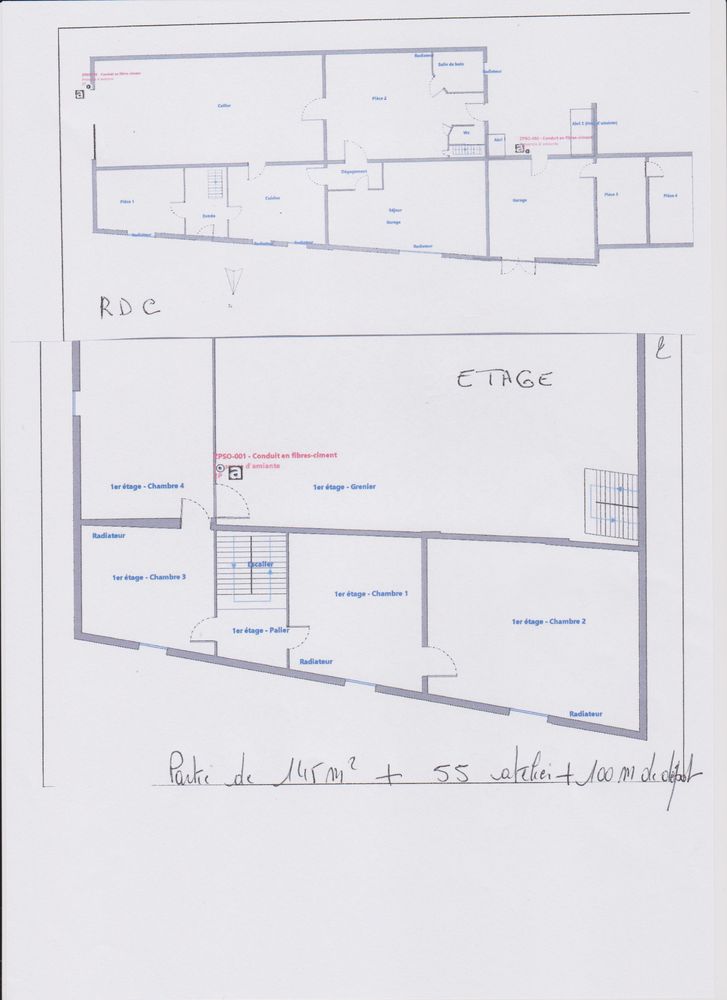 Radiateur
Salle de bain
Radiateur
Conduit en fibres ciment
a
Cellier
Pièce 2
Wc
Abri
Abri 1
ZPSO-002 - Conduit en fibres-ciment
a
Dégagement
Pièce 1
Entrée
Cuisine
Séjour
Garage
Garage
Pièce 3
Pièce 4
Radiateur
Radiateur
Radiateur
Radiateur
RDC
ETAGE
ZPSO-001 - Conduit en fibres-ciment
d'amiante
a
1er étage - Chambre 4
1er étage - Grenier
Radiateur
Escalier
1er étage - Chambre 3
1er étage - Chambre 1
1er étage - Palier
1er étage - Chambre 2
Radiateur
Radiateur
Partie de 145 m² + 55 atelier + 100 m de dépôt